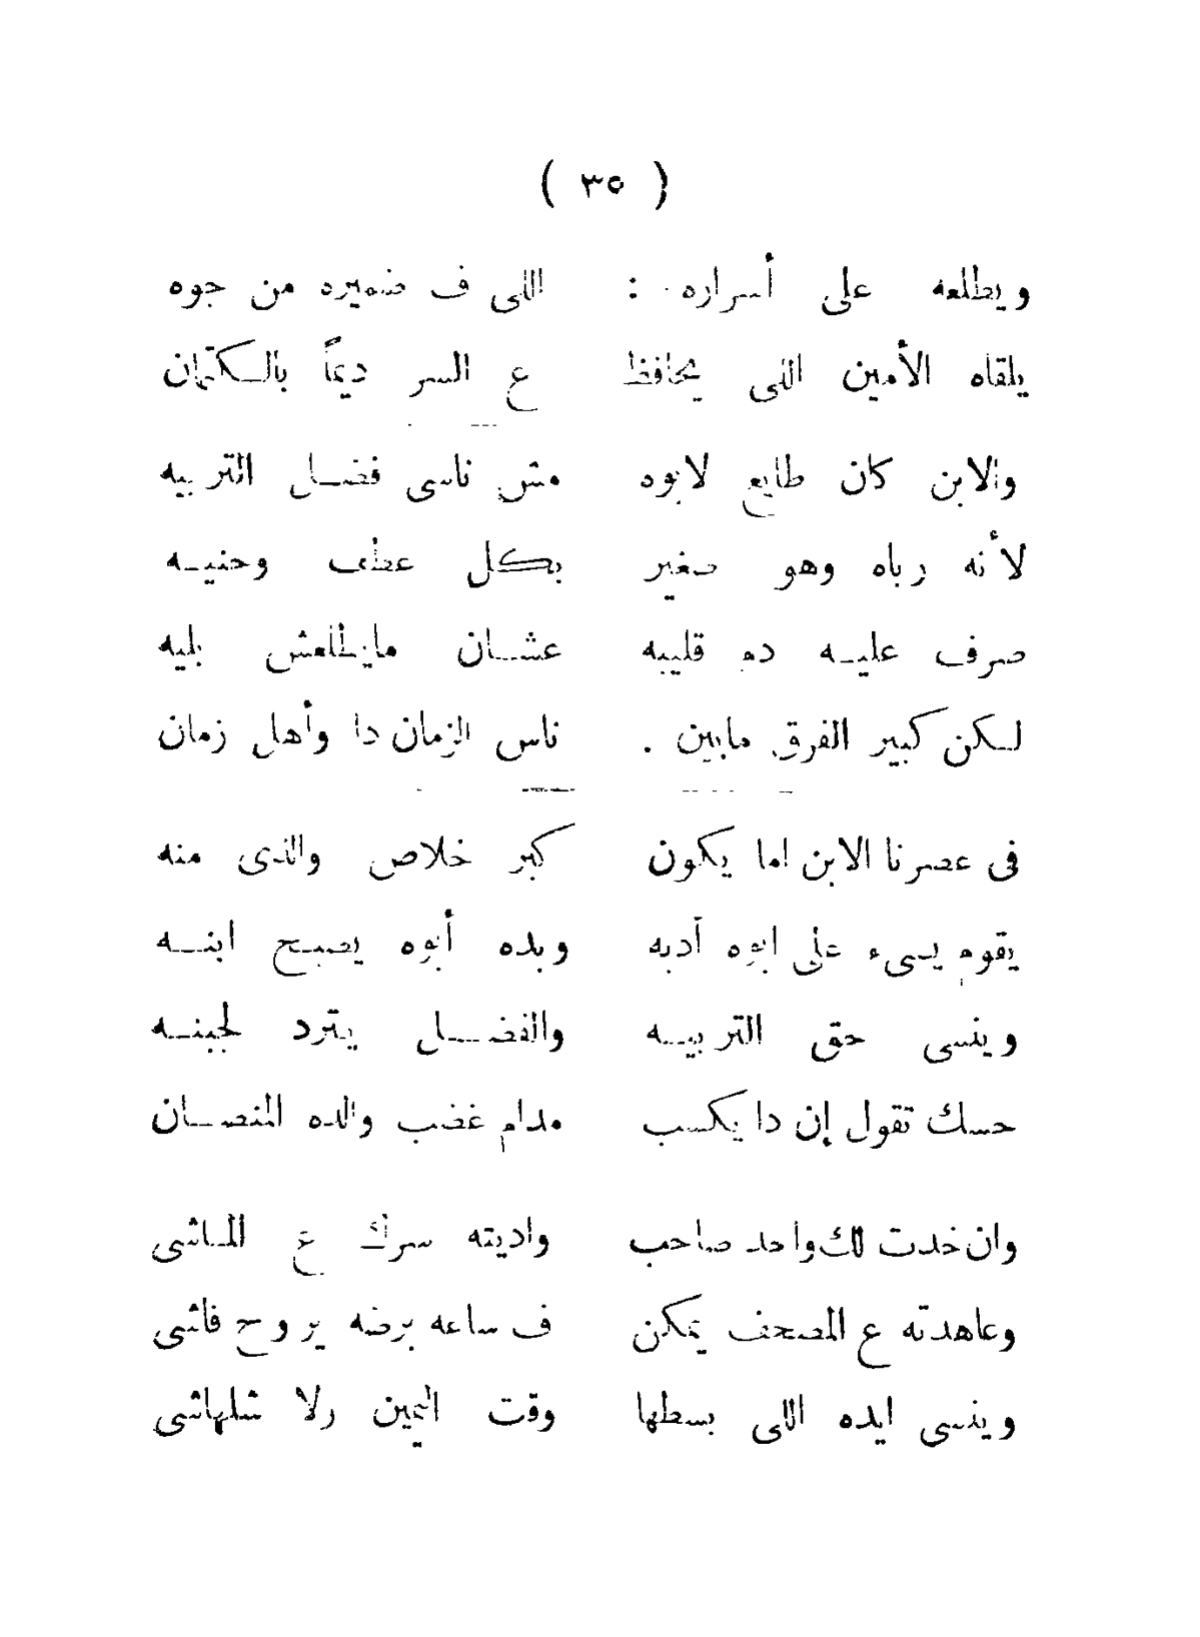 ( ٣٥ )
ويطلعه على أسراره : اللى ف ضميره من جوه
يلقاه الأمين اللى يحافظ ع السر ديماً بالكتمان
والابن كان طايع لابوه مش ناسى فضل التربيه
لأنه رباه وهو صغير بكل عطف وحنيه
صرف عليه دم قلبيه عشان مايطلعش بليه
لكن كبير الفرق مابين . ناس الزمان دا وأهل زمان
فى عصرنا الابن اما يكون كبر خلاص والذى منه
يقوم يسىء على ابوه أدبه وبده أبوه يصبح ابنه
وينسى حق التربيه والفضل يترد لجبنه
حسك تقول إن دا يكسب مدام غضب والده المنصان
وان خدت لك واحد صاحب واديته سرك ع الماشى
وعاهدته ع المصحف يمكن ف ساعه برضه يروح فاشى
وينسى ايده اللى بسطها وقت اليمين ولا شلهاشى